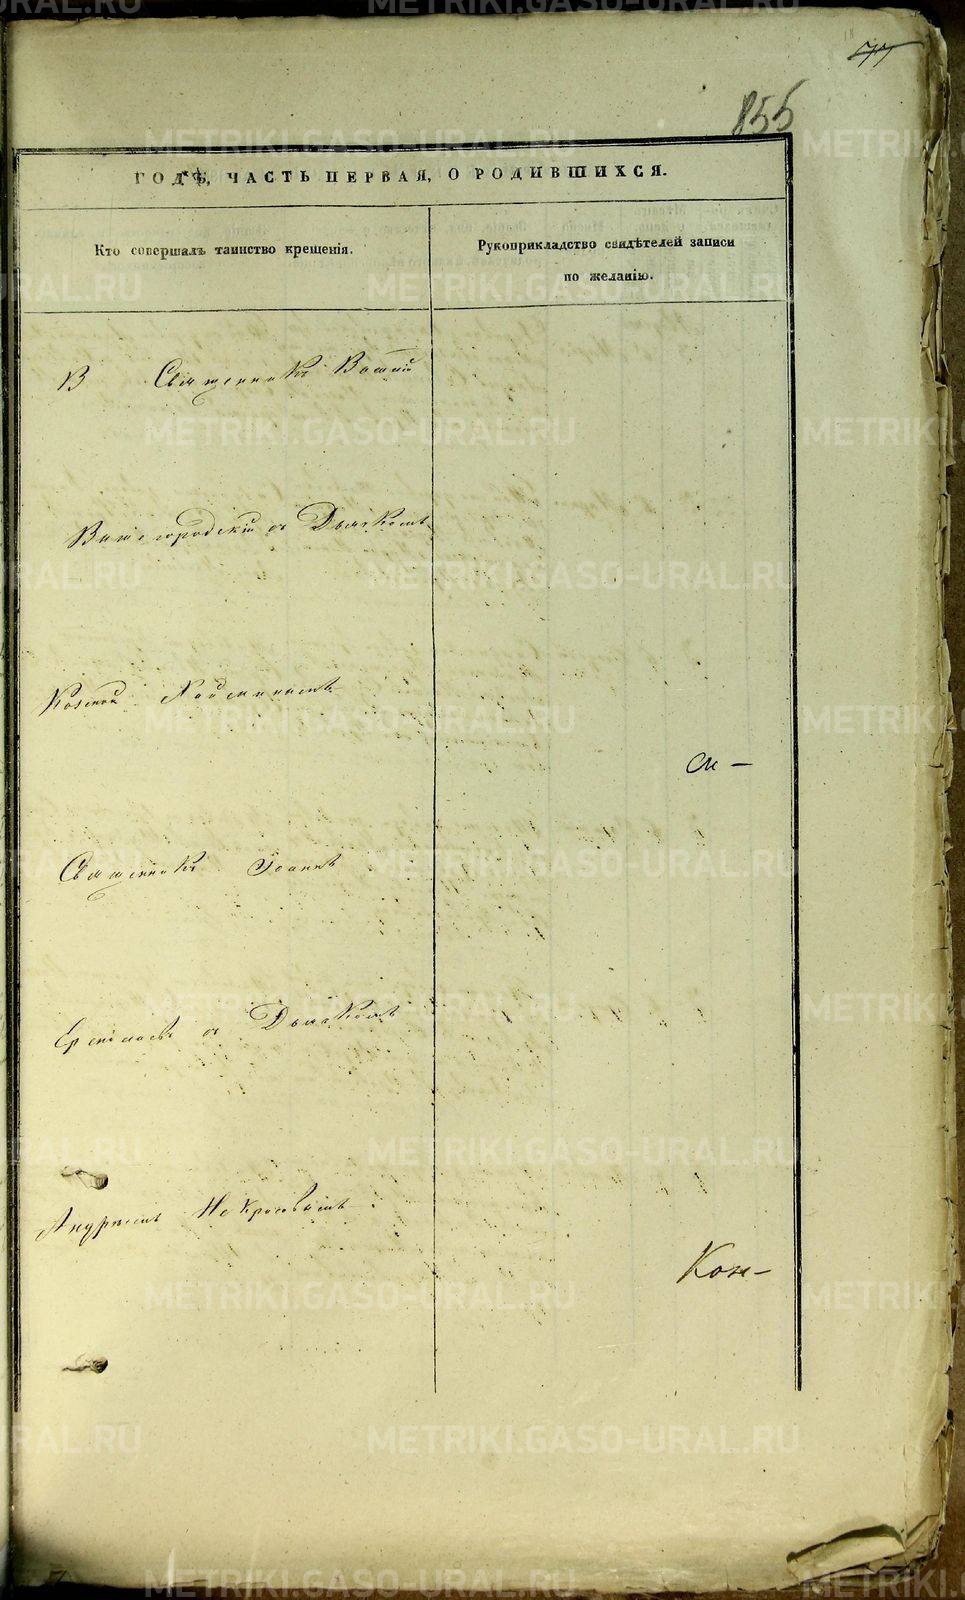 77
855
ГОДѢ, ЧАСТЬ ПЕРВАЯ, О РОДИВШИХСЯ.
Кто совершалъ таинство крещенія.
Рукоприкладство свидѣтелей записи
по желанію.
Священникъ
съ Дьячкомъ
Козмой
см —
Священникъ Іоаннъ
съ Дьячкомъ
Андреемъ Некрасовымъ
Кон-
METRIKI.GASO-URAL.RU